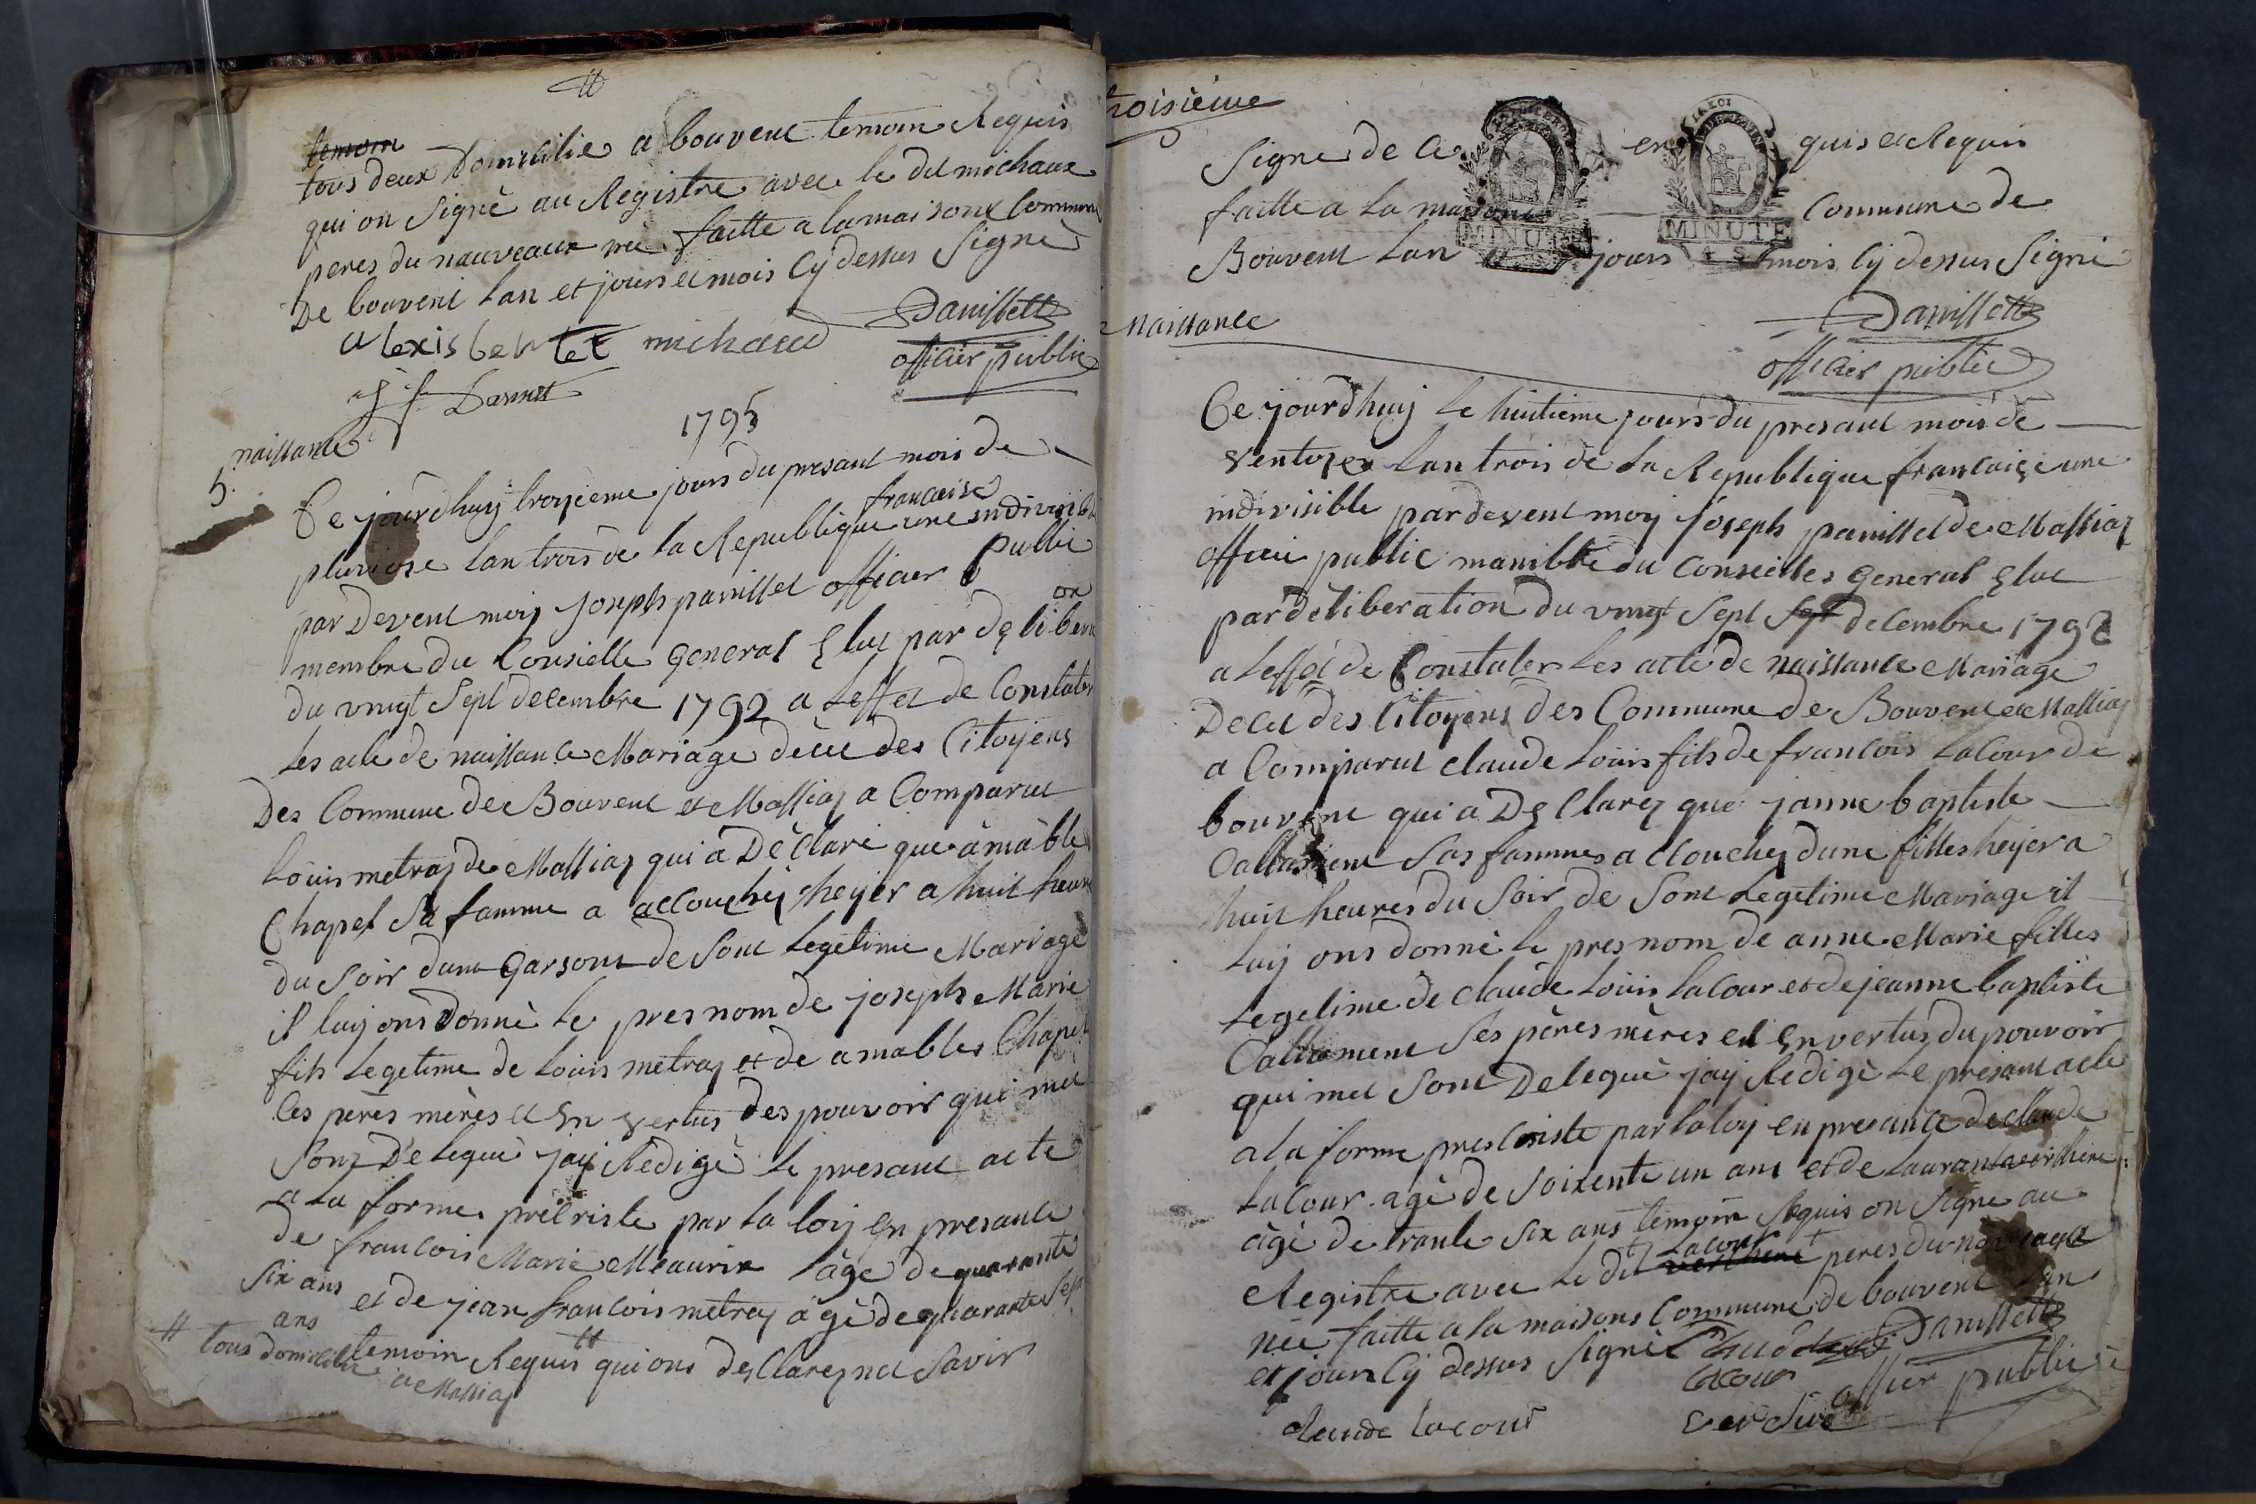 temoin
tous deux Domicilie a bouvent temoin Requis
qui on Signè au Registre avec le dit michaux
peres du nauveaux née faitte a la maisont Commune
De bouvent Lan et jours et mois Cy dessus Signè
alexis michaud Panisset
officier public
J f
1795
naissance
5.
Ce jourdhuy troyieme jours du presant mois de
francaise
pluviose Lan trois de la Republique une indivisible
par Devent moy Joseph panisset officier Public
on
membre du Conseille General Elut par deliberati
du vingt Sept decembre 1792 a Leffet de Constater
Les acte de naissance Mariage décet des Citoyens
Des Commune de Bouvent et Massiaz a Comparut
Loüis metraz de Massiaz qui a Dèclarè que àmàble
Chapel Sa famme a accouchéz heyer a huit heures
du Soir dunt Garsont de Sont Legetime Mariage
il luy ons donnè Le presnom de joseph Marie
fils Legetime de Loüis metraz et de amables Chapel
Ces pères mères et En vertus des pouvoir qui met
Sont Delequè jay Rèdigè Le presant acte
a La forme prècriste par La loiy En presance
de francois Marie Meaurix agè de quarante
Six ans et de jean francois metraz àgè de quarante Sept
ans temoin Requis # qui ons desClarez net Savir
# tous domicilie a Massiaz
troisième
Signe de Ce en quis et Requis
faitte a La maisont Commune de
Bouvent Lan jours mois Cy dessus Signè
MINUTE
MINUTE
Panissett
officier public
Naissance
Ce jourdhuy Le huitieme jours du presant mois de
ventoze Lan trois de La Republique francaise une
indivisible par devent moy Joseph panisset de Massiaz
officie public manibre du Conseilles General Elut
par dèliberation du vingt Sept Sept decembre 1792
a Leffét de Constater Les acte de naissance Mariage
Decet des Citoyens des Commune de Bouvent et Massiaz
a Comparut claude Loüis fils de francois Lacour de
bouvent qui a DeClarez que janne baptiste
Sas fammes a clouchez dune filles heyer a
huit heures du Soir de Sont Legetime Mariage il
Luy ons donnè Le presnom de anne Marie filles
Legetime de claude Loüis Lacour et de jeanne baptiste
Ses pères mères et En vertus du pouvoir
qui met Sont Delequè jay Rèdigè Le presant acte
a La forme prescriste par La loy en presance de claude
Lacour agè de Soixente un ans et de Laurant verchere
àgè de trante Six ans temoin Requis on Signe au
Lacour
Registre avec Le dit verchere peres du nauveaux
née faitte a La maisons Commune de bouvent Lan
et jours Cy dessus Signè Panissett
Lacour officier public
claude lacour